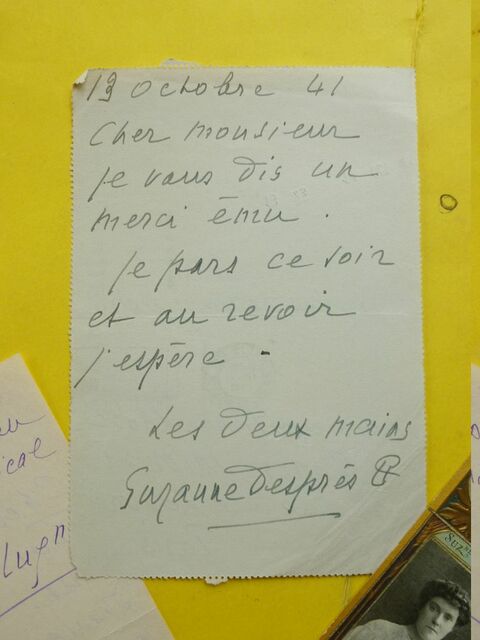 13 Octobre 41
Cher monsieur
Je vous dis un
merci ému.
Je pars ce soir
et au revoir
j'espère.
Les deux mains
Suzanne Desprès
ical
Lugn
SUZ